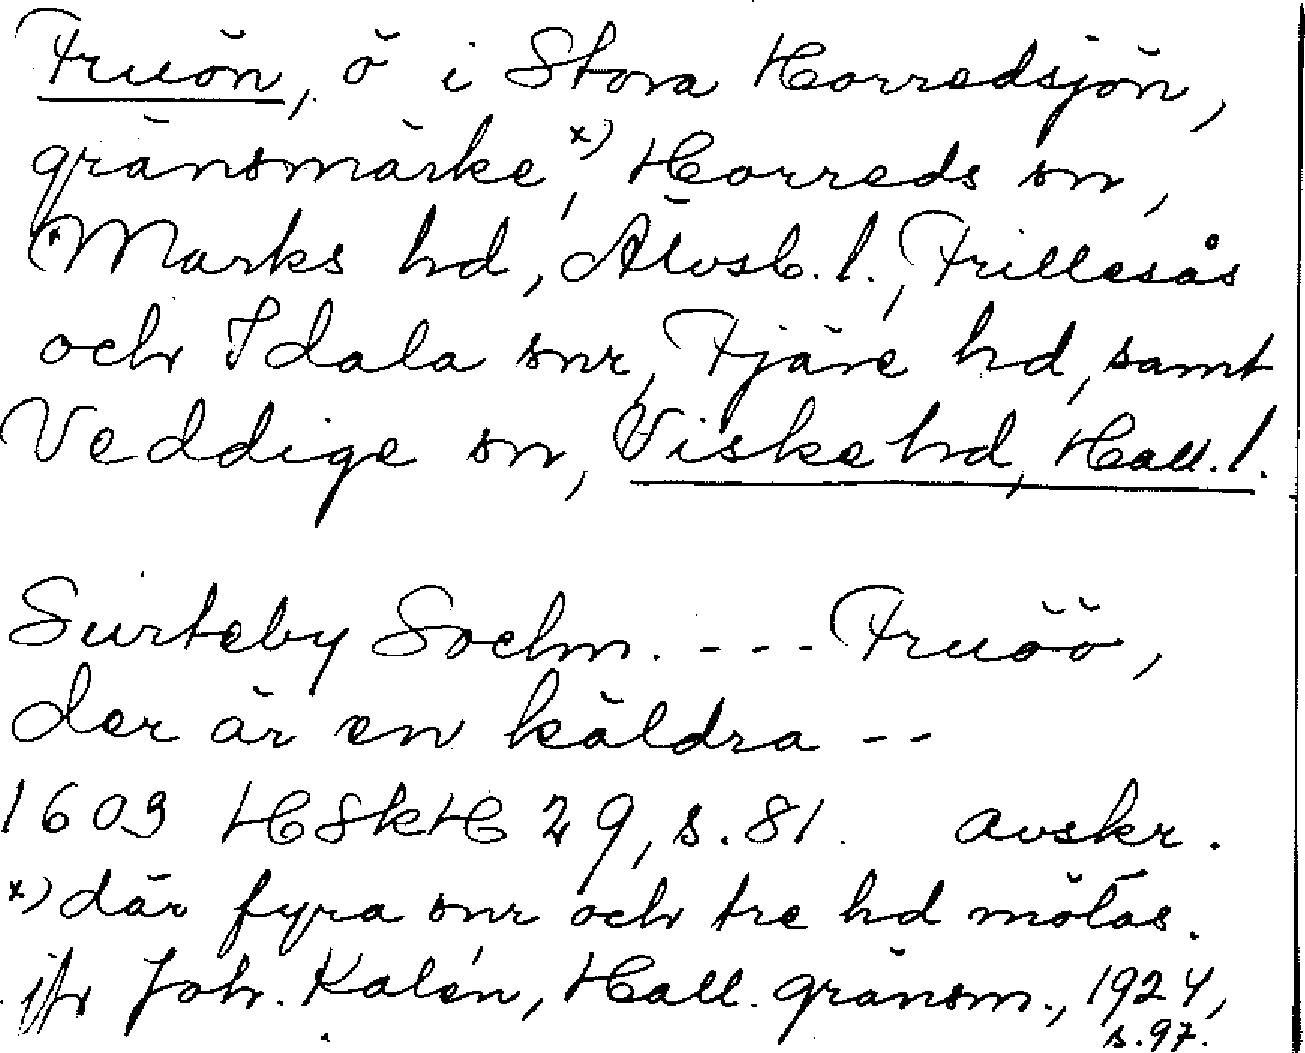 Fruön, ö i Stora Horredsjön,
gränsmärke x), Horreds sn,
Marks hd, Älvsb. l., Frillesås
och Idala snr, Fjäre hd, samt
Veddige sn, Viske hd, Hall. l.
Surteby Sochn. ---- Fruöö,
der är en käldra --
1603 HSkH 29, s. 81. avskr.
x) där fyra snr och tre hd mötas.
jfr Joh. Kalén, Hall. gränsm., 1924,
s. 97.